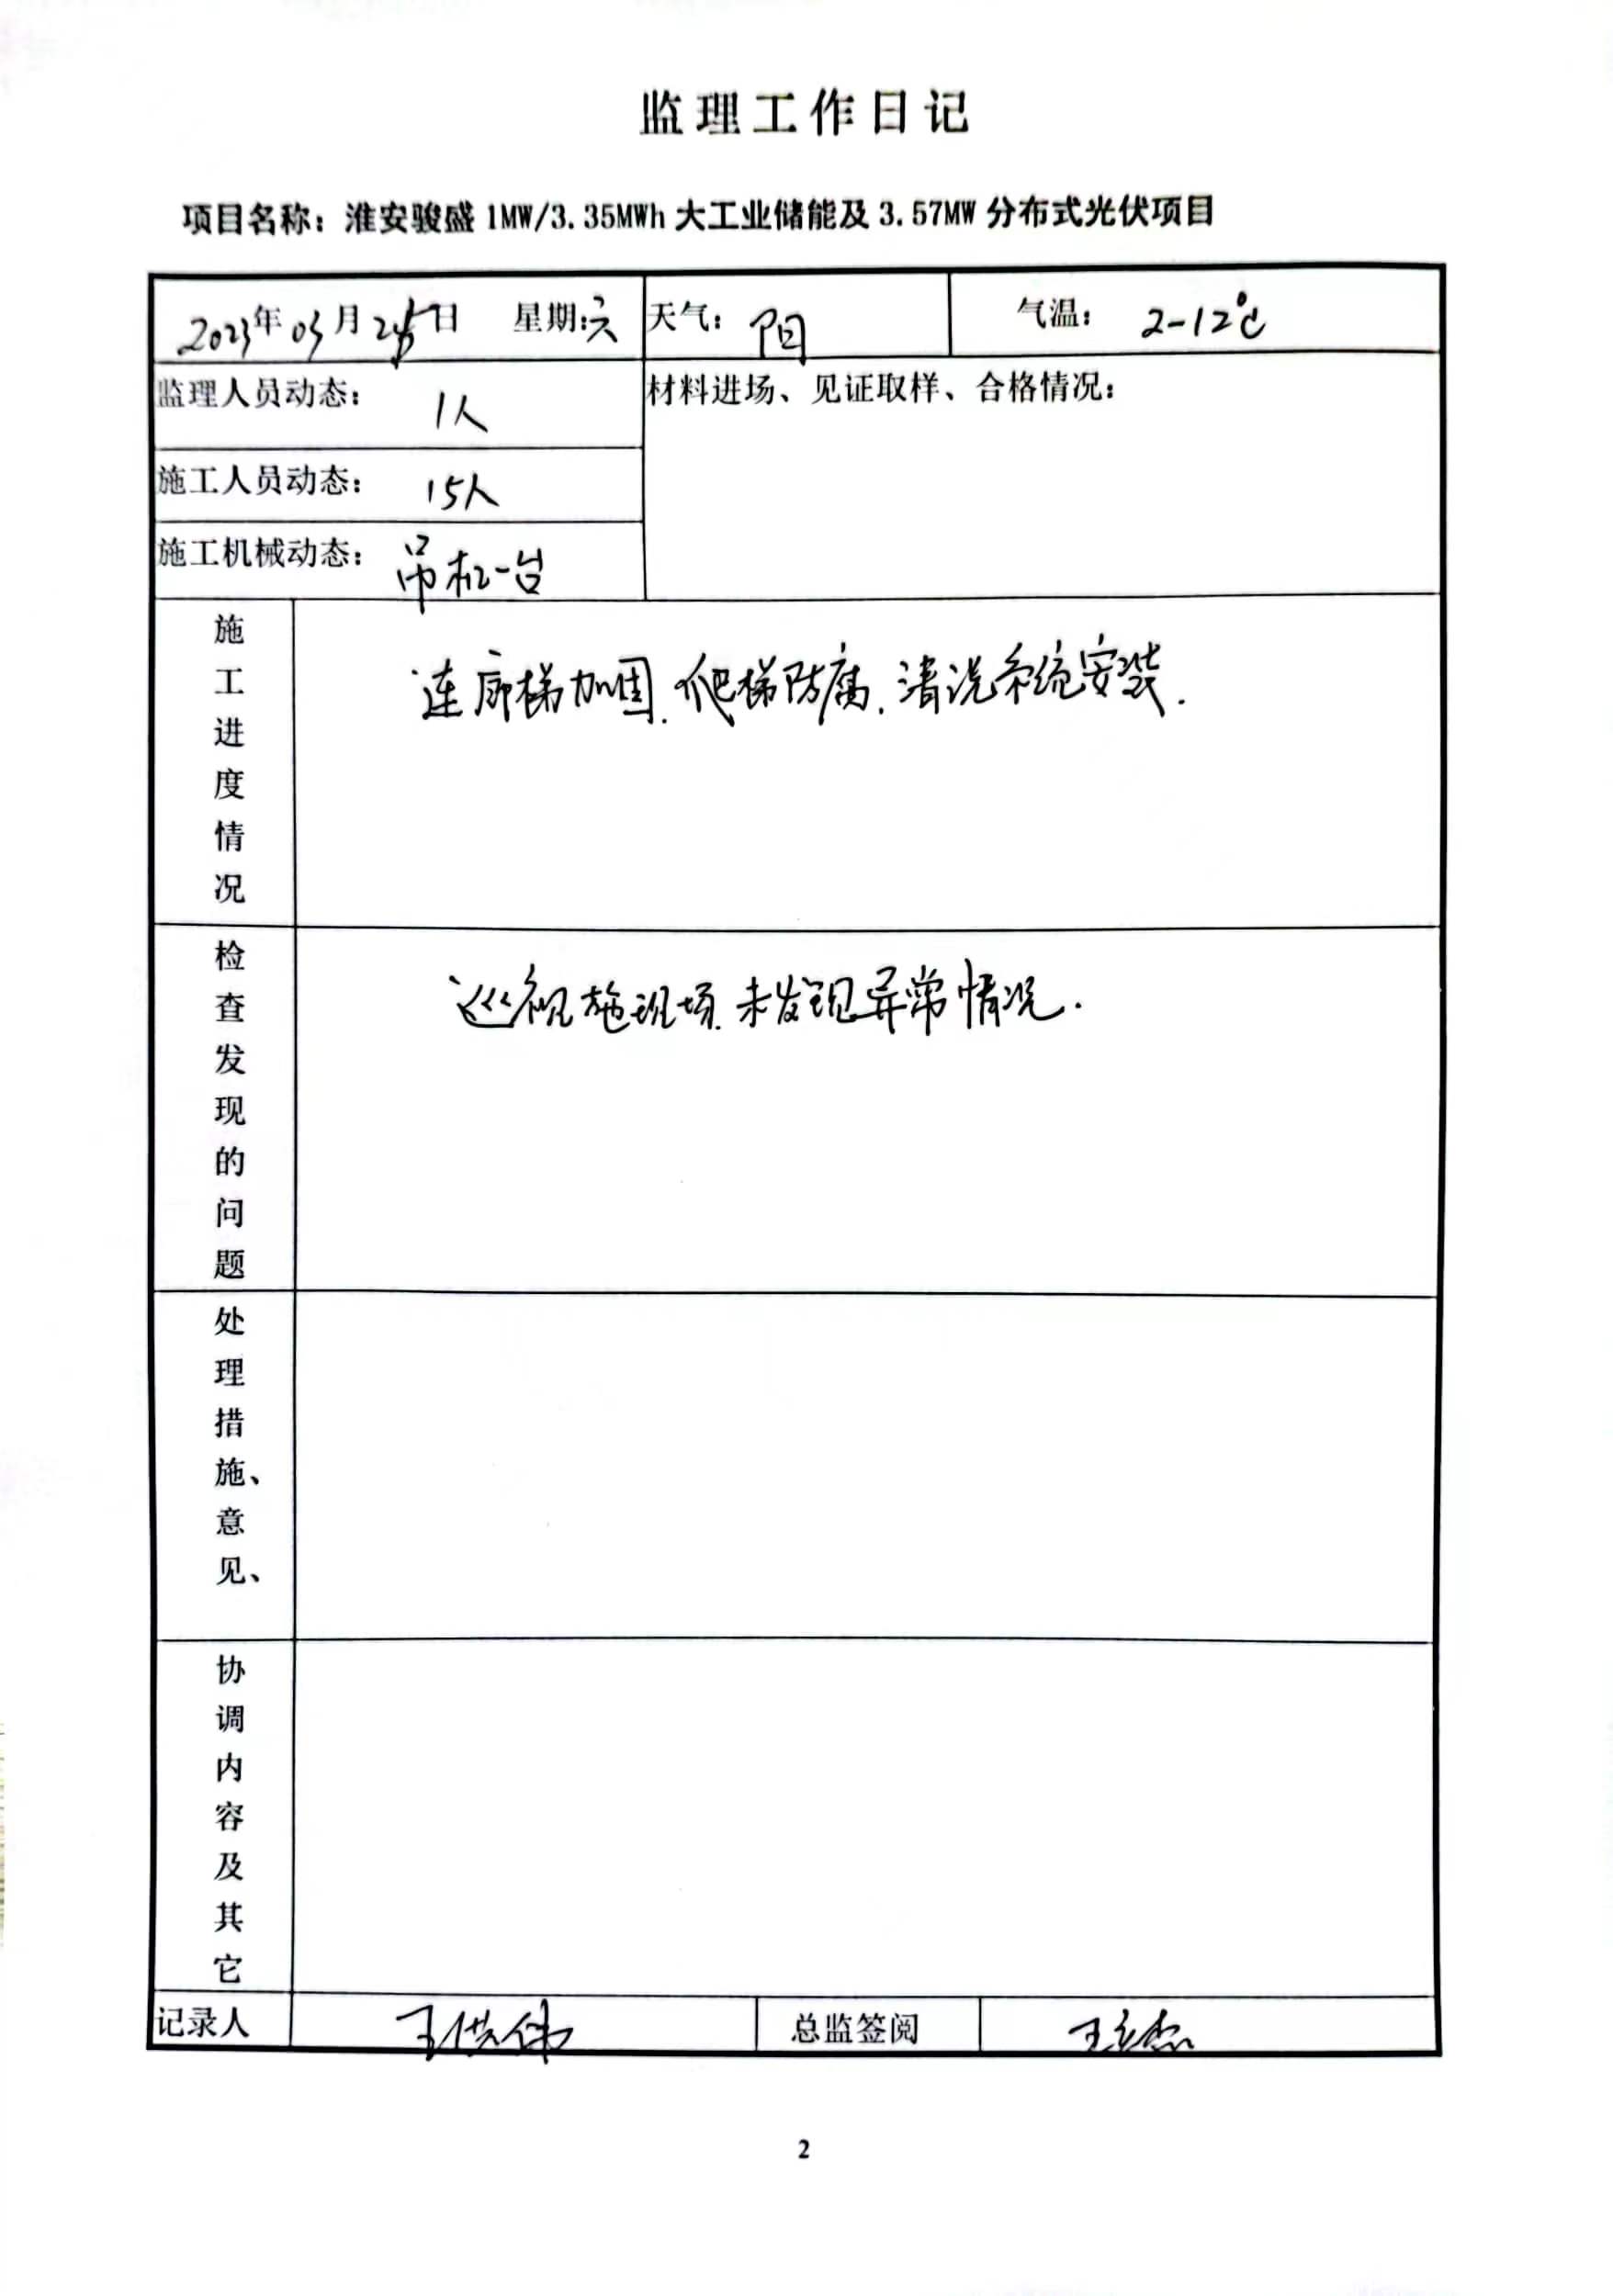 监理工作日记
项目名称：淮安骏盛 1MW/3.35MWh 大工业储能及 3.57MW 分布式光伏项目
2023年 03月 25日 星期:六 天气：阳 气温： 2-12℃
监理人员动态： 1人 材料进场、见证取样、合格情况：
施工人员动态： 15人
施工机械动态： 吊机一台
施工进度情况 连廊梯加固.爬梯防腐.清洗系统安装.
检查发现的问题 巡视施现场.未发现异常情况.
处理措施、意见、
协调内容及其它
记录人 王洪伟 总监签阅
2